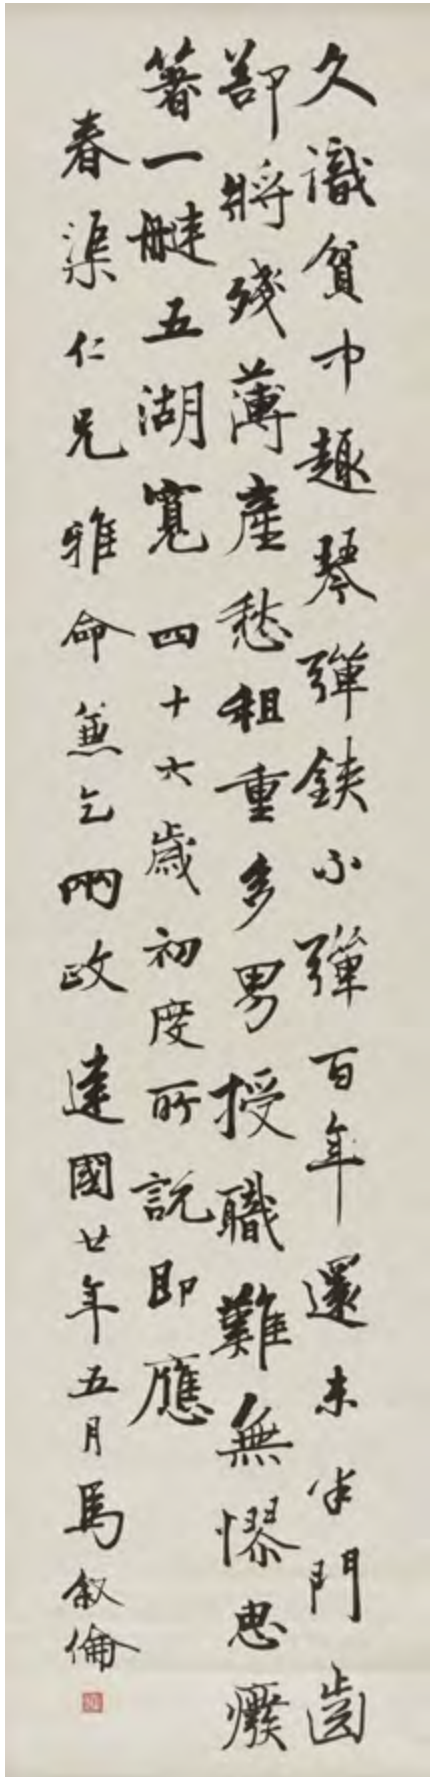 久識貧中趣琴彈鋏不彈百年還未半門齒
卻將殘薄產愁租重多男授職難無憀思癈
箸一艇五湖寬 四十六歲初度所說即應
春渠仁兄雅命兼乞兩政 建國廿年五月馬叙倫